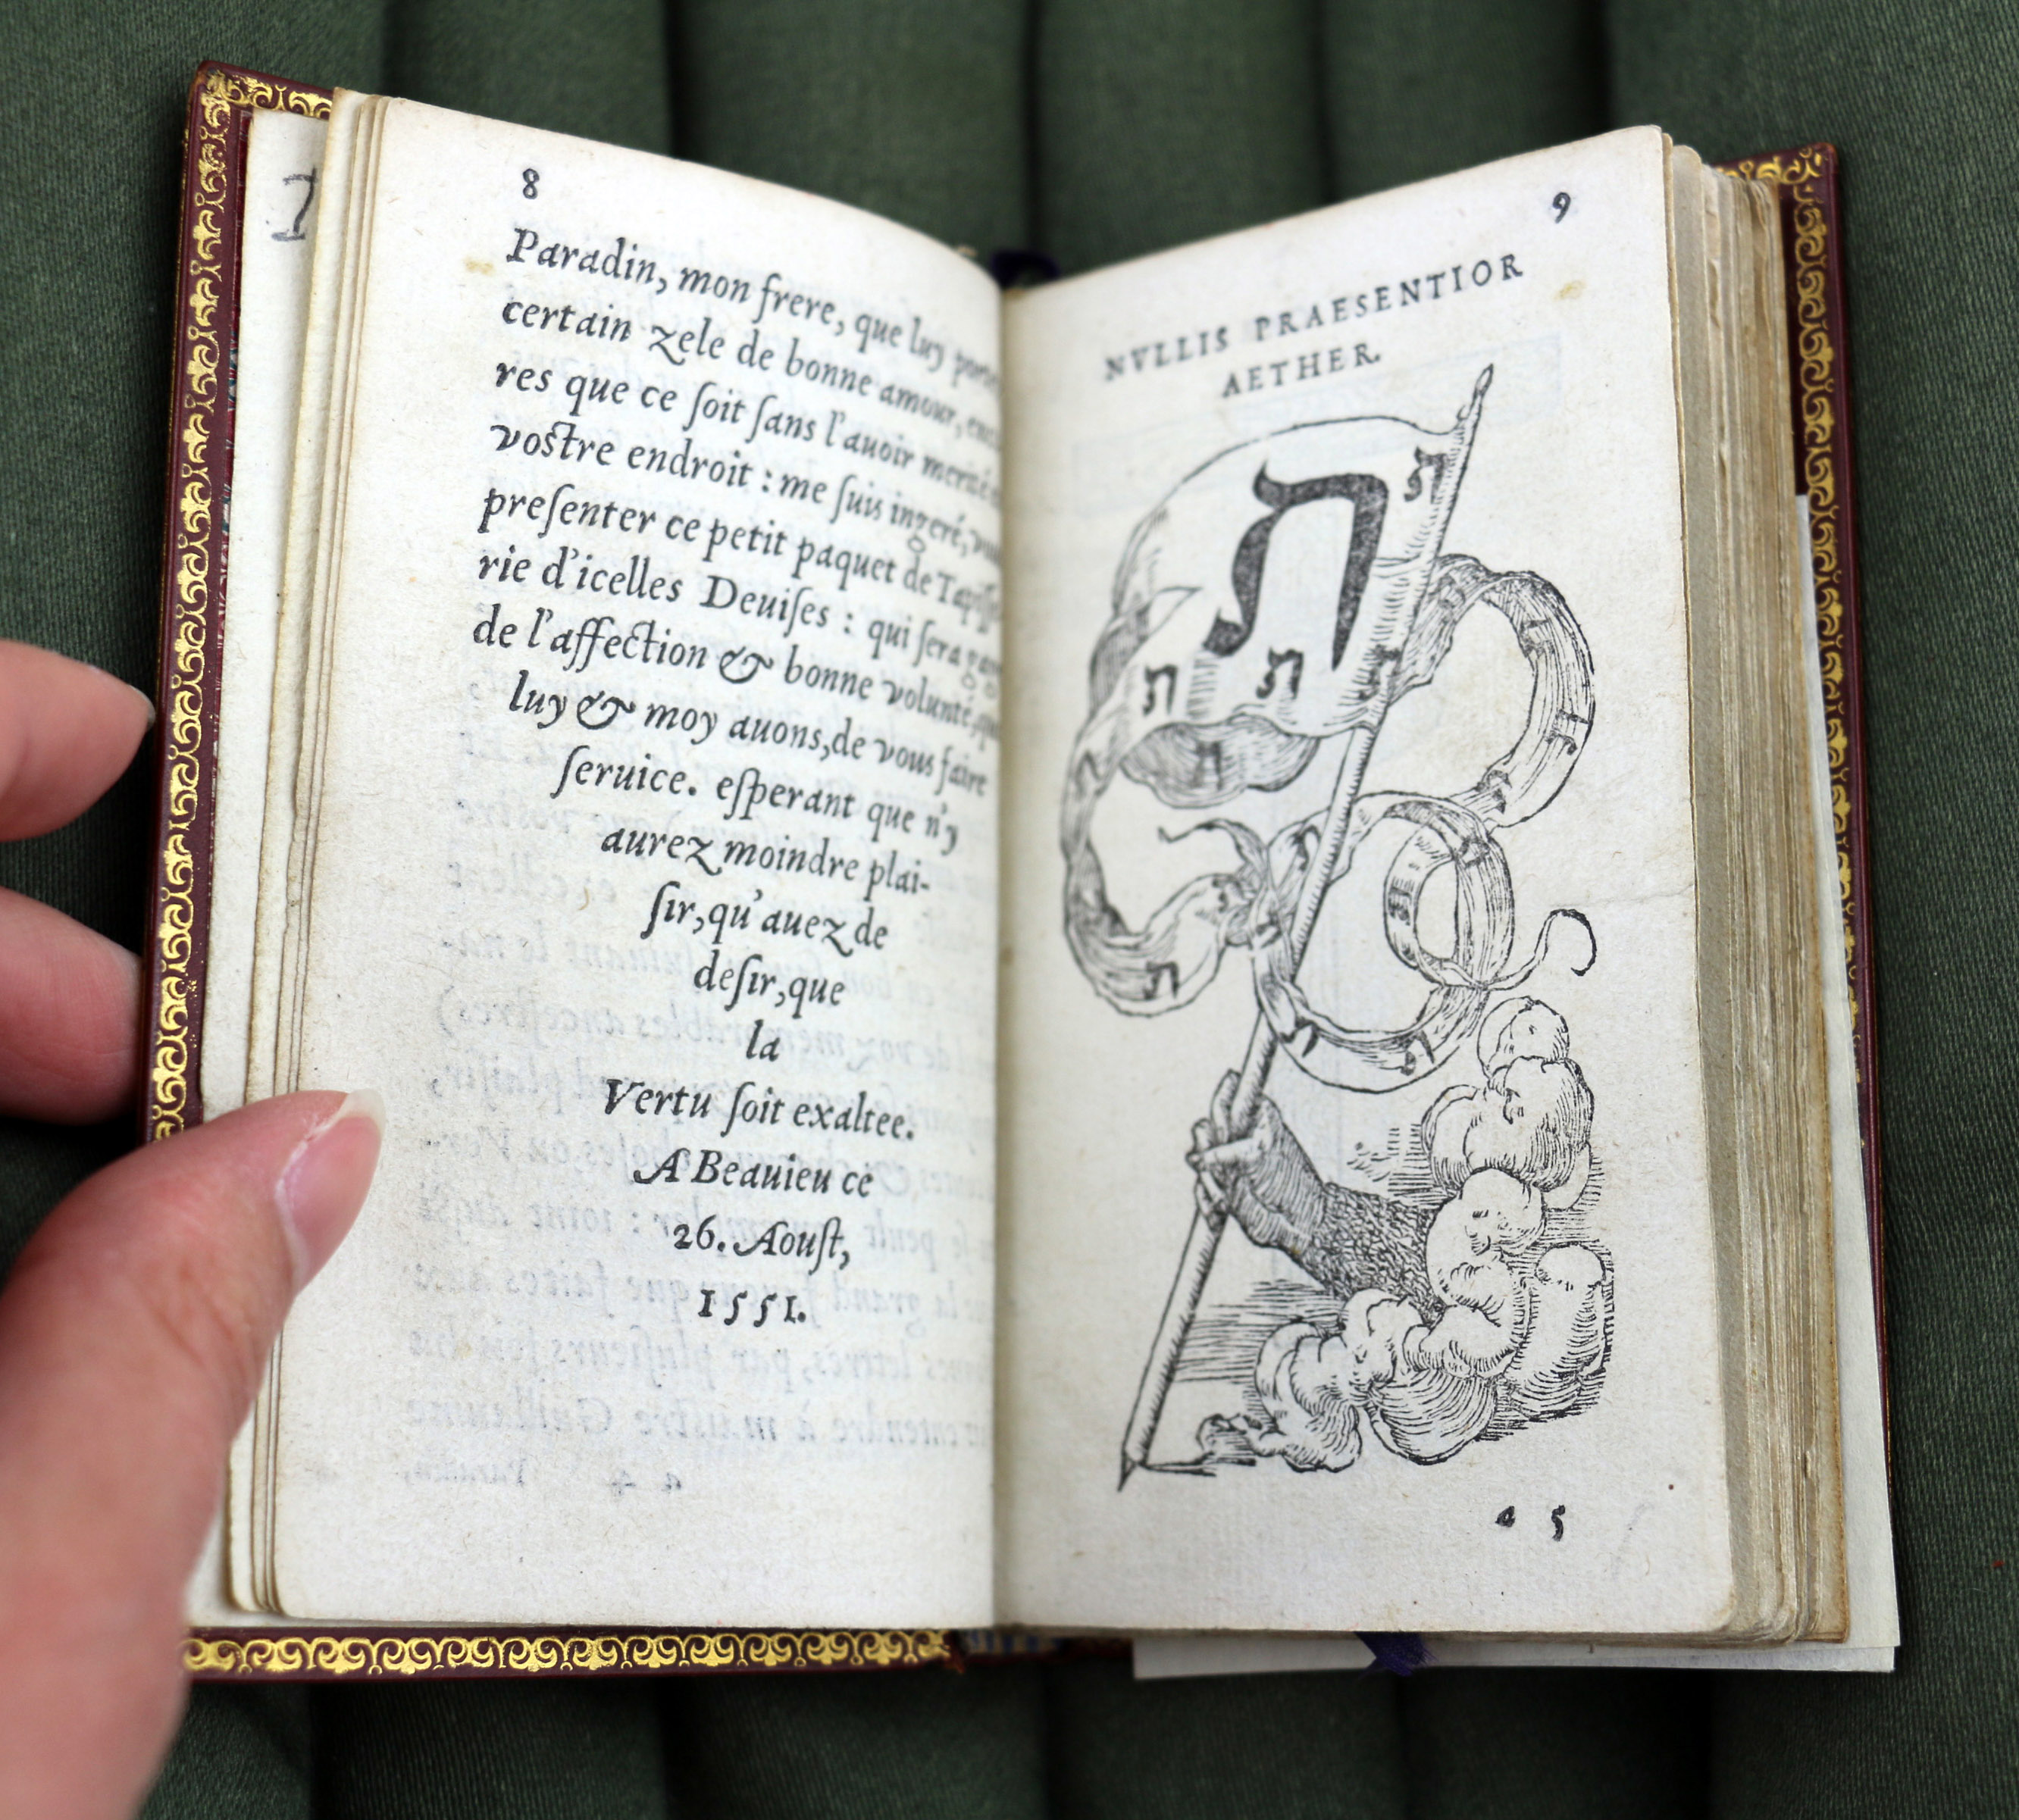 8
Paradin, mon frere, que luy
certain zele de bonne amour,
res que ce ſoit ſans l'auoir merité
voſtre endroit : me ſuis ingeré,
preſenter ce petit paquet de Tapiſſe
rie d'icelles Deuiſes : qui ſera
de l'affection & bonne volunté,
luy & moy auons, de vous faire
ſeruice. eſperant que n'y
aurez moindre plai-
ſir, qu'auez de
deſir, que
la
Vertu ſoit exaltee.
A Beauieu ce
26. Aouſt,
1551.
9
NVLLIS PRAESENTIOR
AETHER.
ת
ת
ת ת ת
ת
ת
ת
a 5